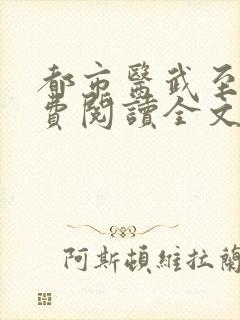 都市醫武至
費閱讀全文
阿斯頓維拉蘭